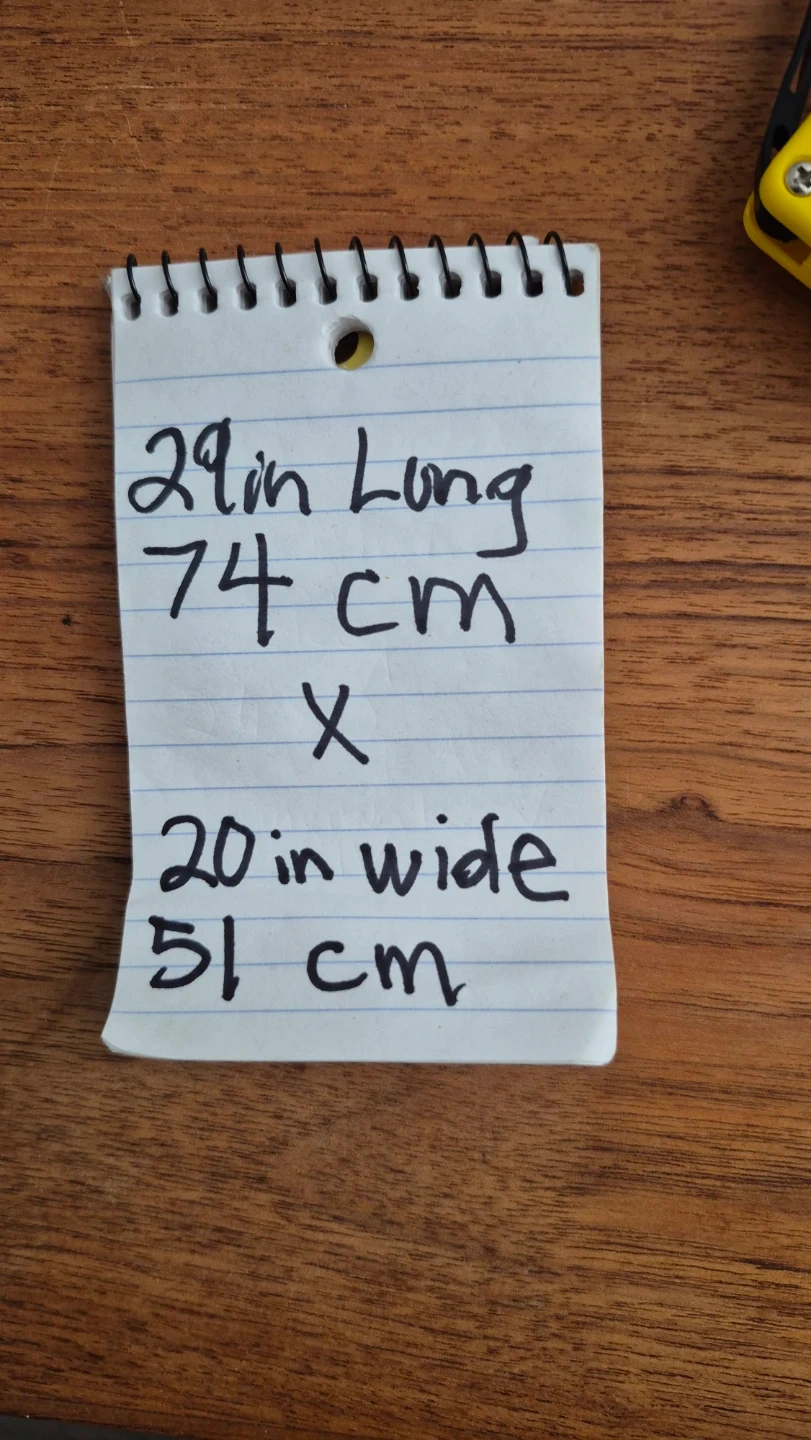 29in Long
74 cm
X
20 in wide
51 cm